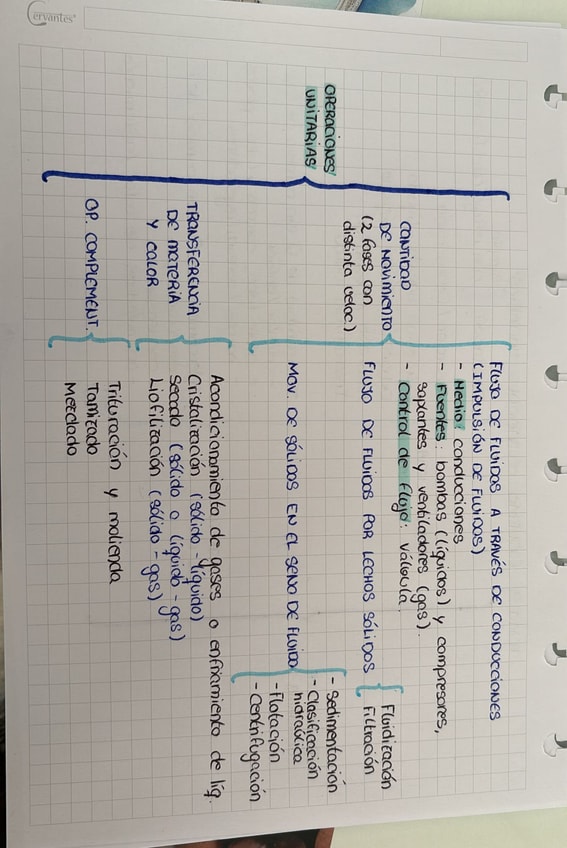 Cervantes
OPERACIONES
UNITARIAS
CANTIDAD
DE MOVIMIENTO
(2 fases con
distinta veloc.)
FLUJO DE FLUIDOS A TRAVÉS DE CONDUCCIONES
(IMPULSIÓN DE FLUIDOS)
- Medio: conducciones
- Fuentes: bombas (líquidos) y compresores,
soplantes y ventiladores (gas).
- Control de flujo: Válvula.
FLUJO DE FLUIDOS POR LECHOS SÓLIDOS
Fluidización
Filtración
MOV. DE SÓLIDOS EN EL SENO DE FLUIDO
- Sedimentación
- Clasificación
hidraúlica
- Flotación
- Centrifugación
TRANSFERENCIA
DE MATERIA
Y CALOR
Acondicionamiento de gases o enfriamiento de líq.
Cristalización (sólido - líquido)
Secado (sólido o líquido - gas)
Liofilización (sólido - gas)
OP. COMPLEMENT.
Trituración y molienda
Tamizado
Mezclado